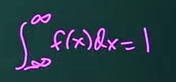 ∫_∞^∞ f(x)dx=1